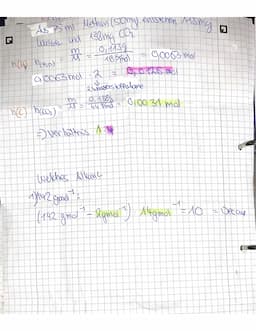 As 75 ml Methan (50mg) entstehen 113mg
Wasser und 138mg CO₂
n(H) n(H₂O) = m/M = 0,113g / 18 g/mol = 0,0063 mol
0,0063 mol · 2 = 0,0126 mol
n(C) n(CO₂) = m/M = 0,138g / 44 g/mol = 0,0031 mol
=> Verhältnis 1:4
Welches Alkan:
1) 142 gmol⁻¹:
(142 gmol⁻¹ - 2gmol⁻¹) 14gmol⁻¹ = 10 = Decan